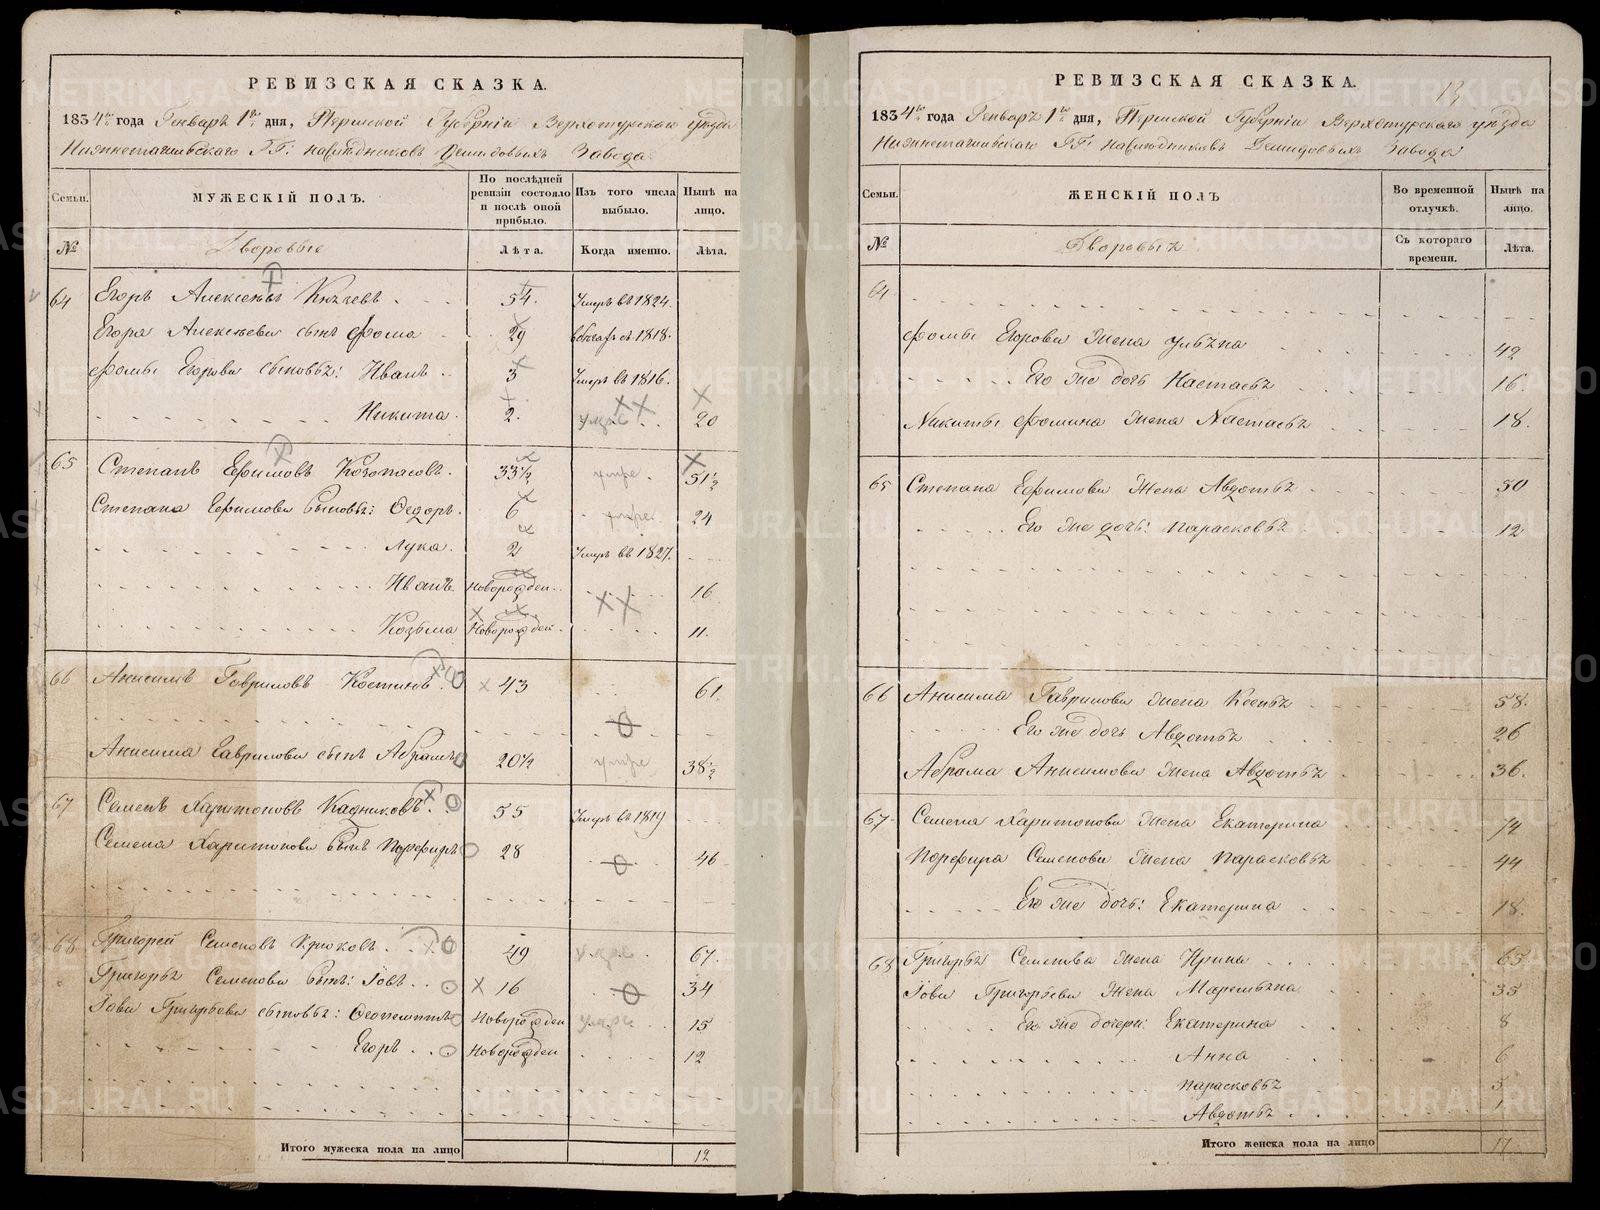 РЕВИЗСКАЯ СКАЗКА.
1834го года Генваря 1го дня, Пермской Губернiи Верхотурскаго уѣзда
Нижнетагильскаго ГГ: наслѣдниковъ Демидовыхъ Завода
Семьи. МУЖЕСКIЙ ПОЛЪ. По послѣдней ревизiи состояло и послѣ оной прибыло. Изъ того числа выбыло. Нынѣ на лицо.
№ Дворовые Лѣта. Когда именно. Лѣта.
64 Егоръ Алексѣевъ 54. Умеръ въ 1824.
Егора Алексѣева сынъ Фома 29 въ 1818.
Фомы Егорова сыновья: Иванъ 3 Умеръ въ 1816.
Никита 2. умре 20
65 Степанъ Ефимовъ Козопасовъ. 33½ умре. 51½
Степана Ефимова сыновья: Ѳедоръ. 6 умре. 24
Лука. 2 Умеръ въ 1827.
Иванъ Новорожден. 16
Козьма Новорожден. 11.
66 Анисимъ Гавриловъ Костинъ 43 61.
Анисима Гаврилова сынъ Абрамъ 20½ умре 38½
67 Семенъ Харитоновъ Кадниковъ. 55 Умеръ въ 1819
Семена Харитонова сынъ Порфиръ 28 46
68 Григорей Семеновъ Крюковъ. 49 умре 67.
Григорья Семенова сынъ: Iовъ. 16 34
Iова Григорьева сыновья: Новорожден умре 15
Егоръ Новорожден 12
Итого мужеска пола на лицо 12
РЕВИЗСКАЯ СКАЗКА.
13
1834го года Генваря 1го дня, Пермской Губернiи Верхотурскаго уѣзда
Нижнетагильскаго ГГ: наслѣдниковъ Демидовыхъ Завода
Семьи. ЖЕНСКIЙ ПОЛЪ Во временной отлучкѣ. Нынѣ на лицо.
№ Дворовыя Съ котораго времени. Лѣта.
64
Фомы Егорова жена Ульяна 42
Его же дочь Настасья 16.
Никиты Фомина жена Настасья 18.
65 Степана Ефимова жена Авдотья 50
Его же дочь: Парасковья 12
66 Анисима Гаврилова жена Ксенья 58.
Его же дочь Авдотья 26
Абрама Анисимова жена Авдотья 36.
67. Семена Харитонова жена Екатерина 74
Порфира Семенова жена Парасковья 44
Его же дочь: Екатерина 18.
68 Григорья Семенова жена Ирина 65.
Iова Григорьева жена Маремьяна 35
Его же дочери: Екатерина 8
Анна 6
Парасковья 3
Авдотья 1
Итого женска пола на лицо 17.
METRIKI.GASO-URAL.RU